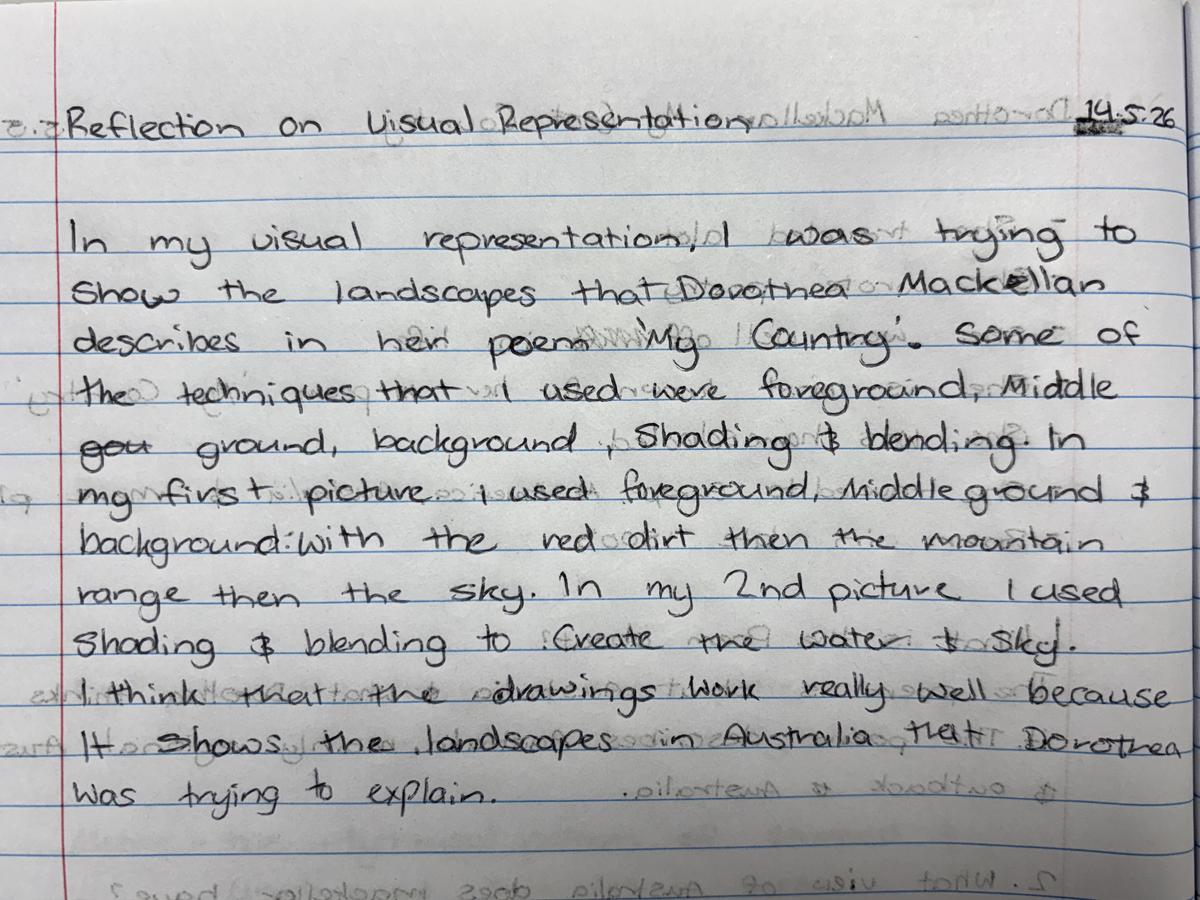 Reflection on Visual Representation 14.5.26
In my visual representation, I was trying to
show the landscapes that Dorothea Mackellar
describes in her poem 'My Country'. Some of
the techniques that I used were foreground, Middle
gou ground, background, shading & blending. In
my first picture I used foreground, Middle ground &
background: with the red dirt then the mountain
range then the sky. In my 2nd picture I used
shading & blending to create the water & sky.
I think that the drawings work really well because
It shows the landscapes in Australia, that Dorothea
was trying to explain.